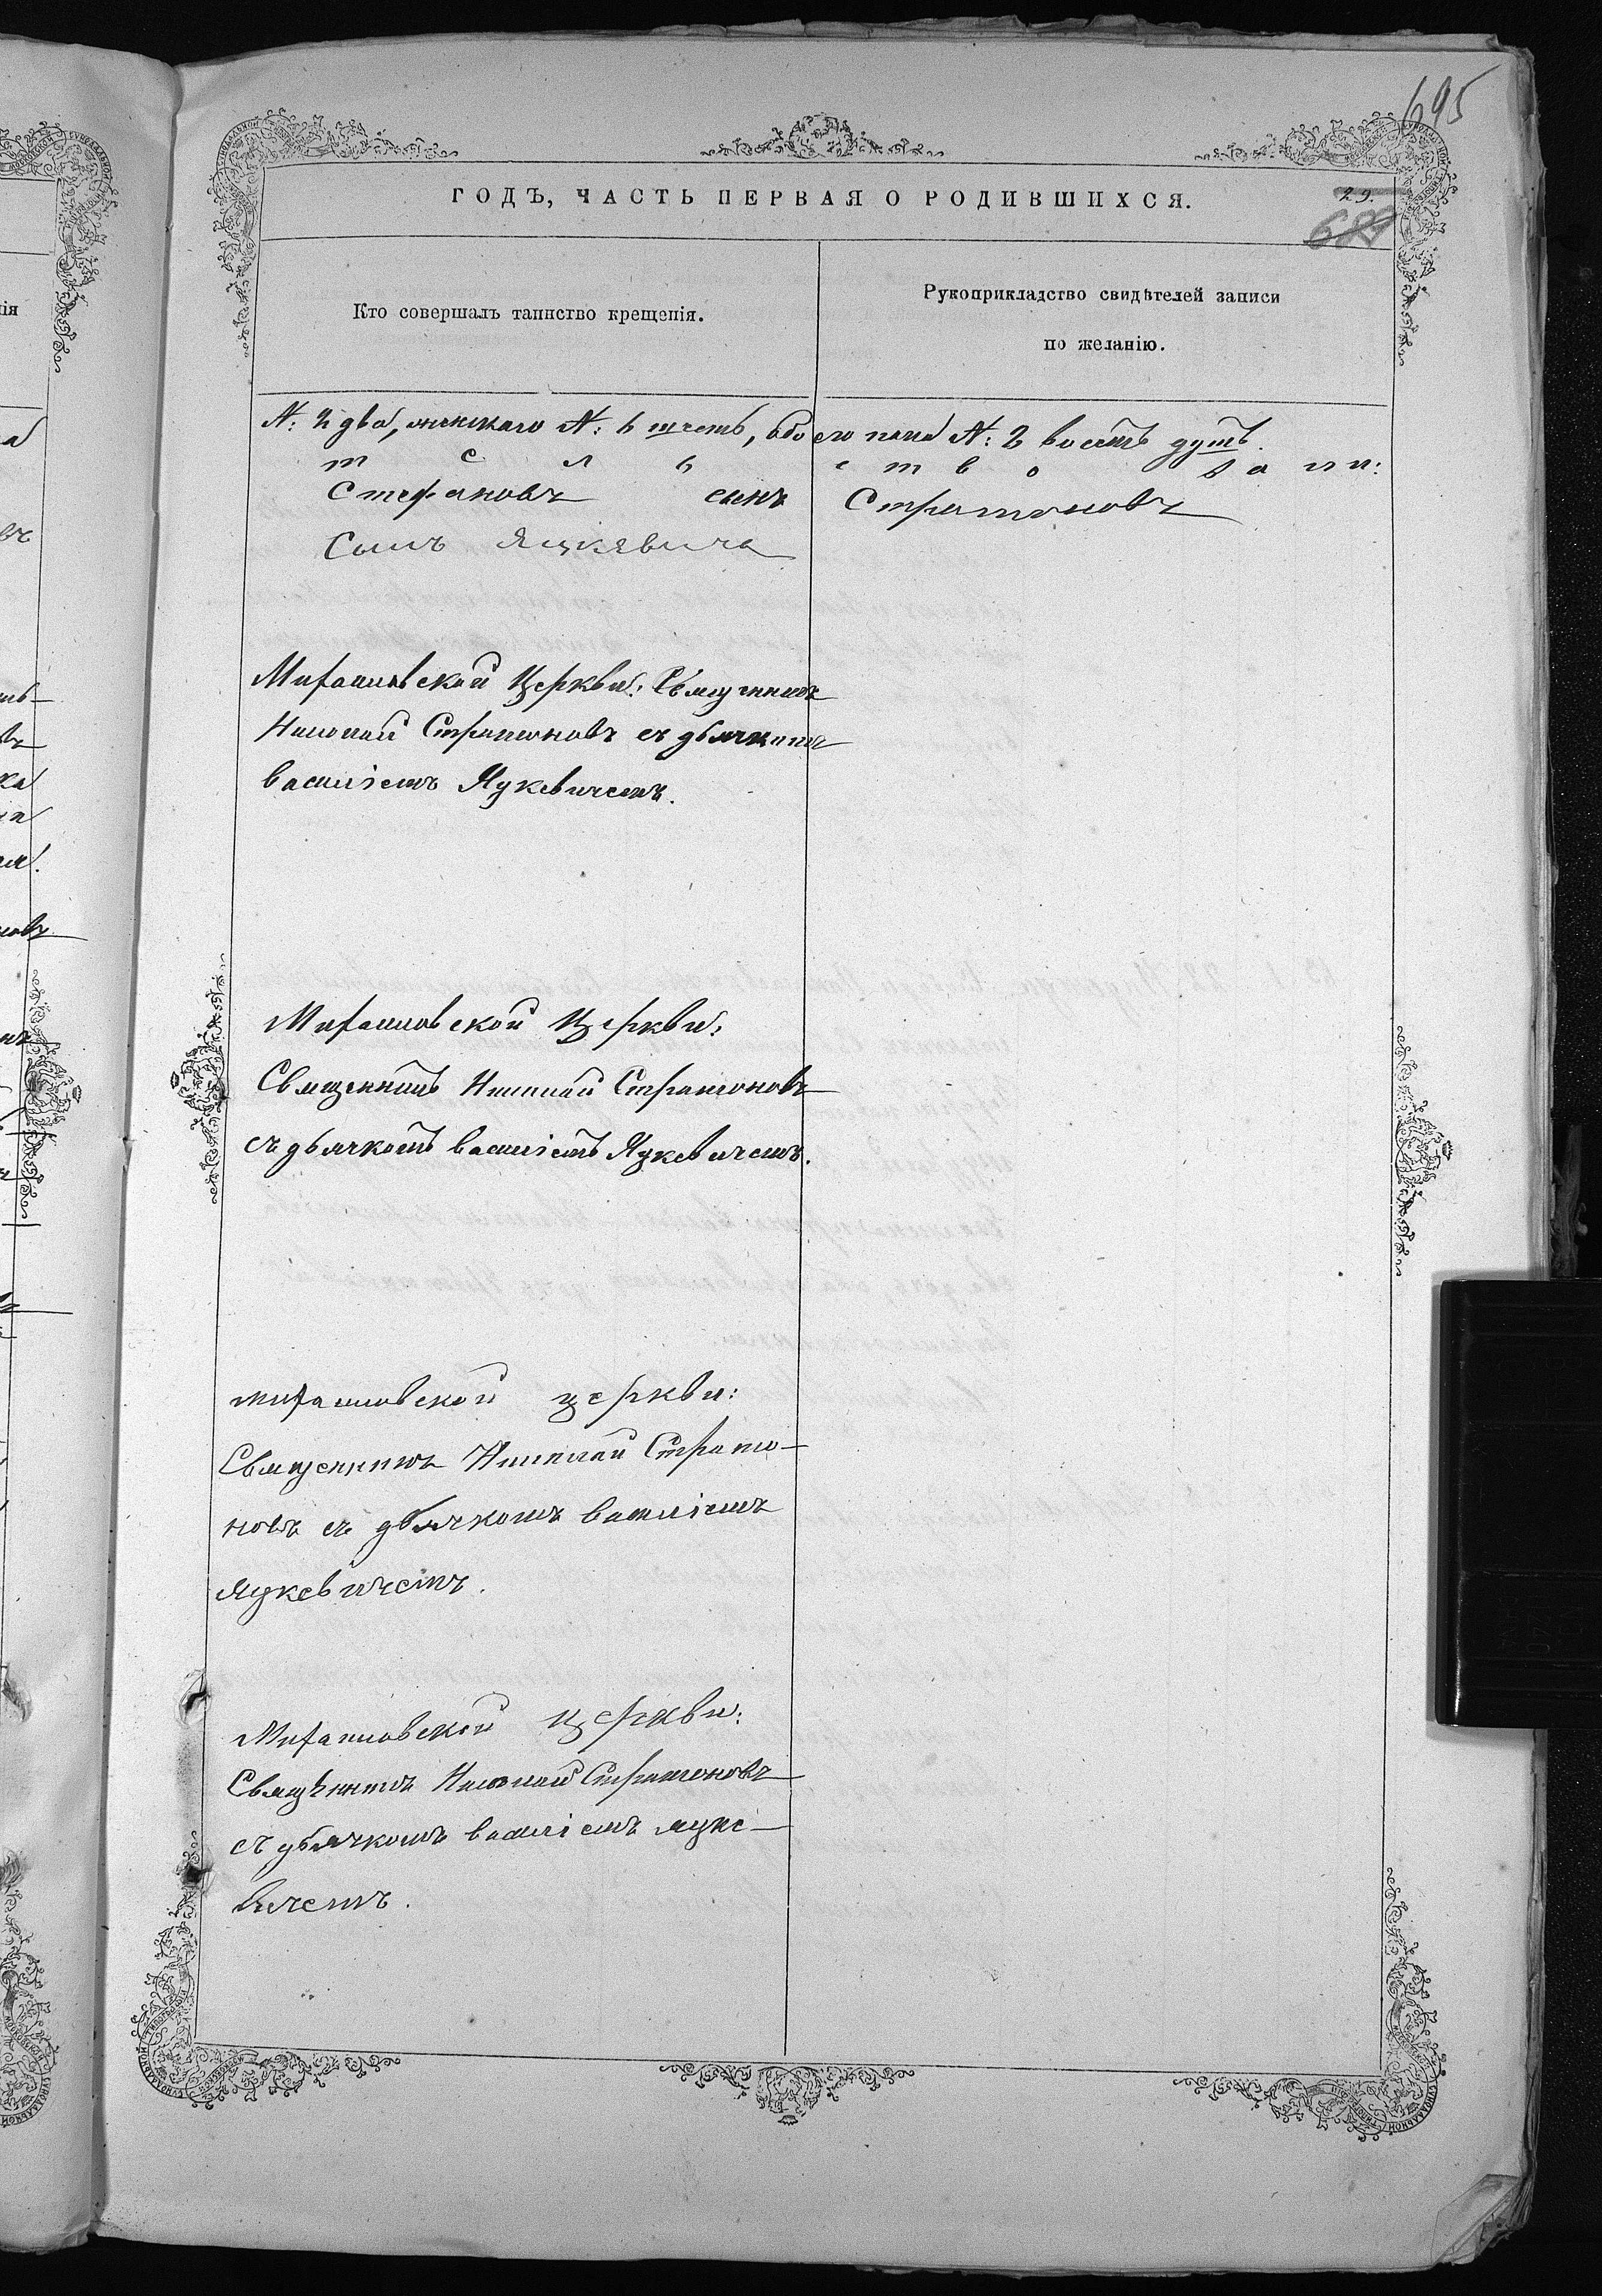 695
ГОДЪ, ЧАСТЬ ПЕРВАЯ О РОДИВШИХСЯ.
29.
Кто совершалъ таинство крещенія.
Рукоприкладство свидѣтелей записи
по желанію.
№: 2 два, женскаго №: 6 шесть, обоего пола №: 8 восемь душъ.
т е л ь с т в о в а л и:
Стефановъ сынъ Стратоновъ
Сынъ Яцкевича
Михаиловской Церкви: Священникъ
Николай Стратоновъ съ дьячкомъ
Василіемъ Яцкевичемъ.
Михаиловской Церкви:
Священникъ Николай Стратоновъ
съ дьячкомъ Василіемъ Яцкевичемъ.
Михаиловской церкви:
Священникъ Николай Страто-
новъ съ дьячкомъ Василіемъ
Яцкевичемъ.
Михаиловской Церкви:
Священникъ Николай Стратоновъ
съ дьячкомъ Василіемъ Яцке-
вичемъ.